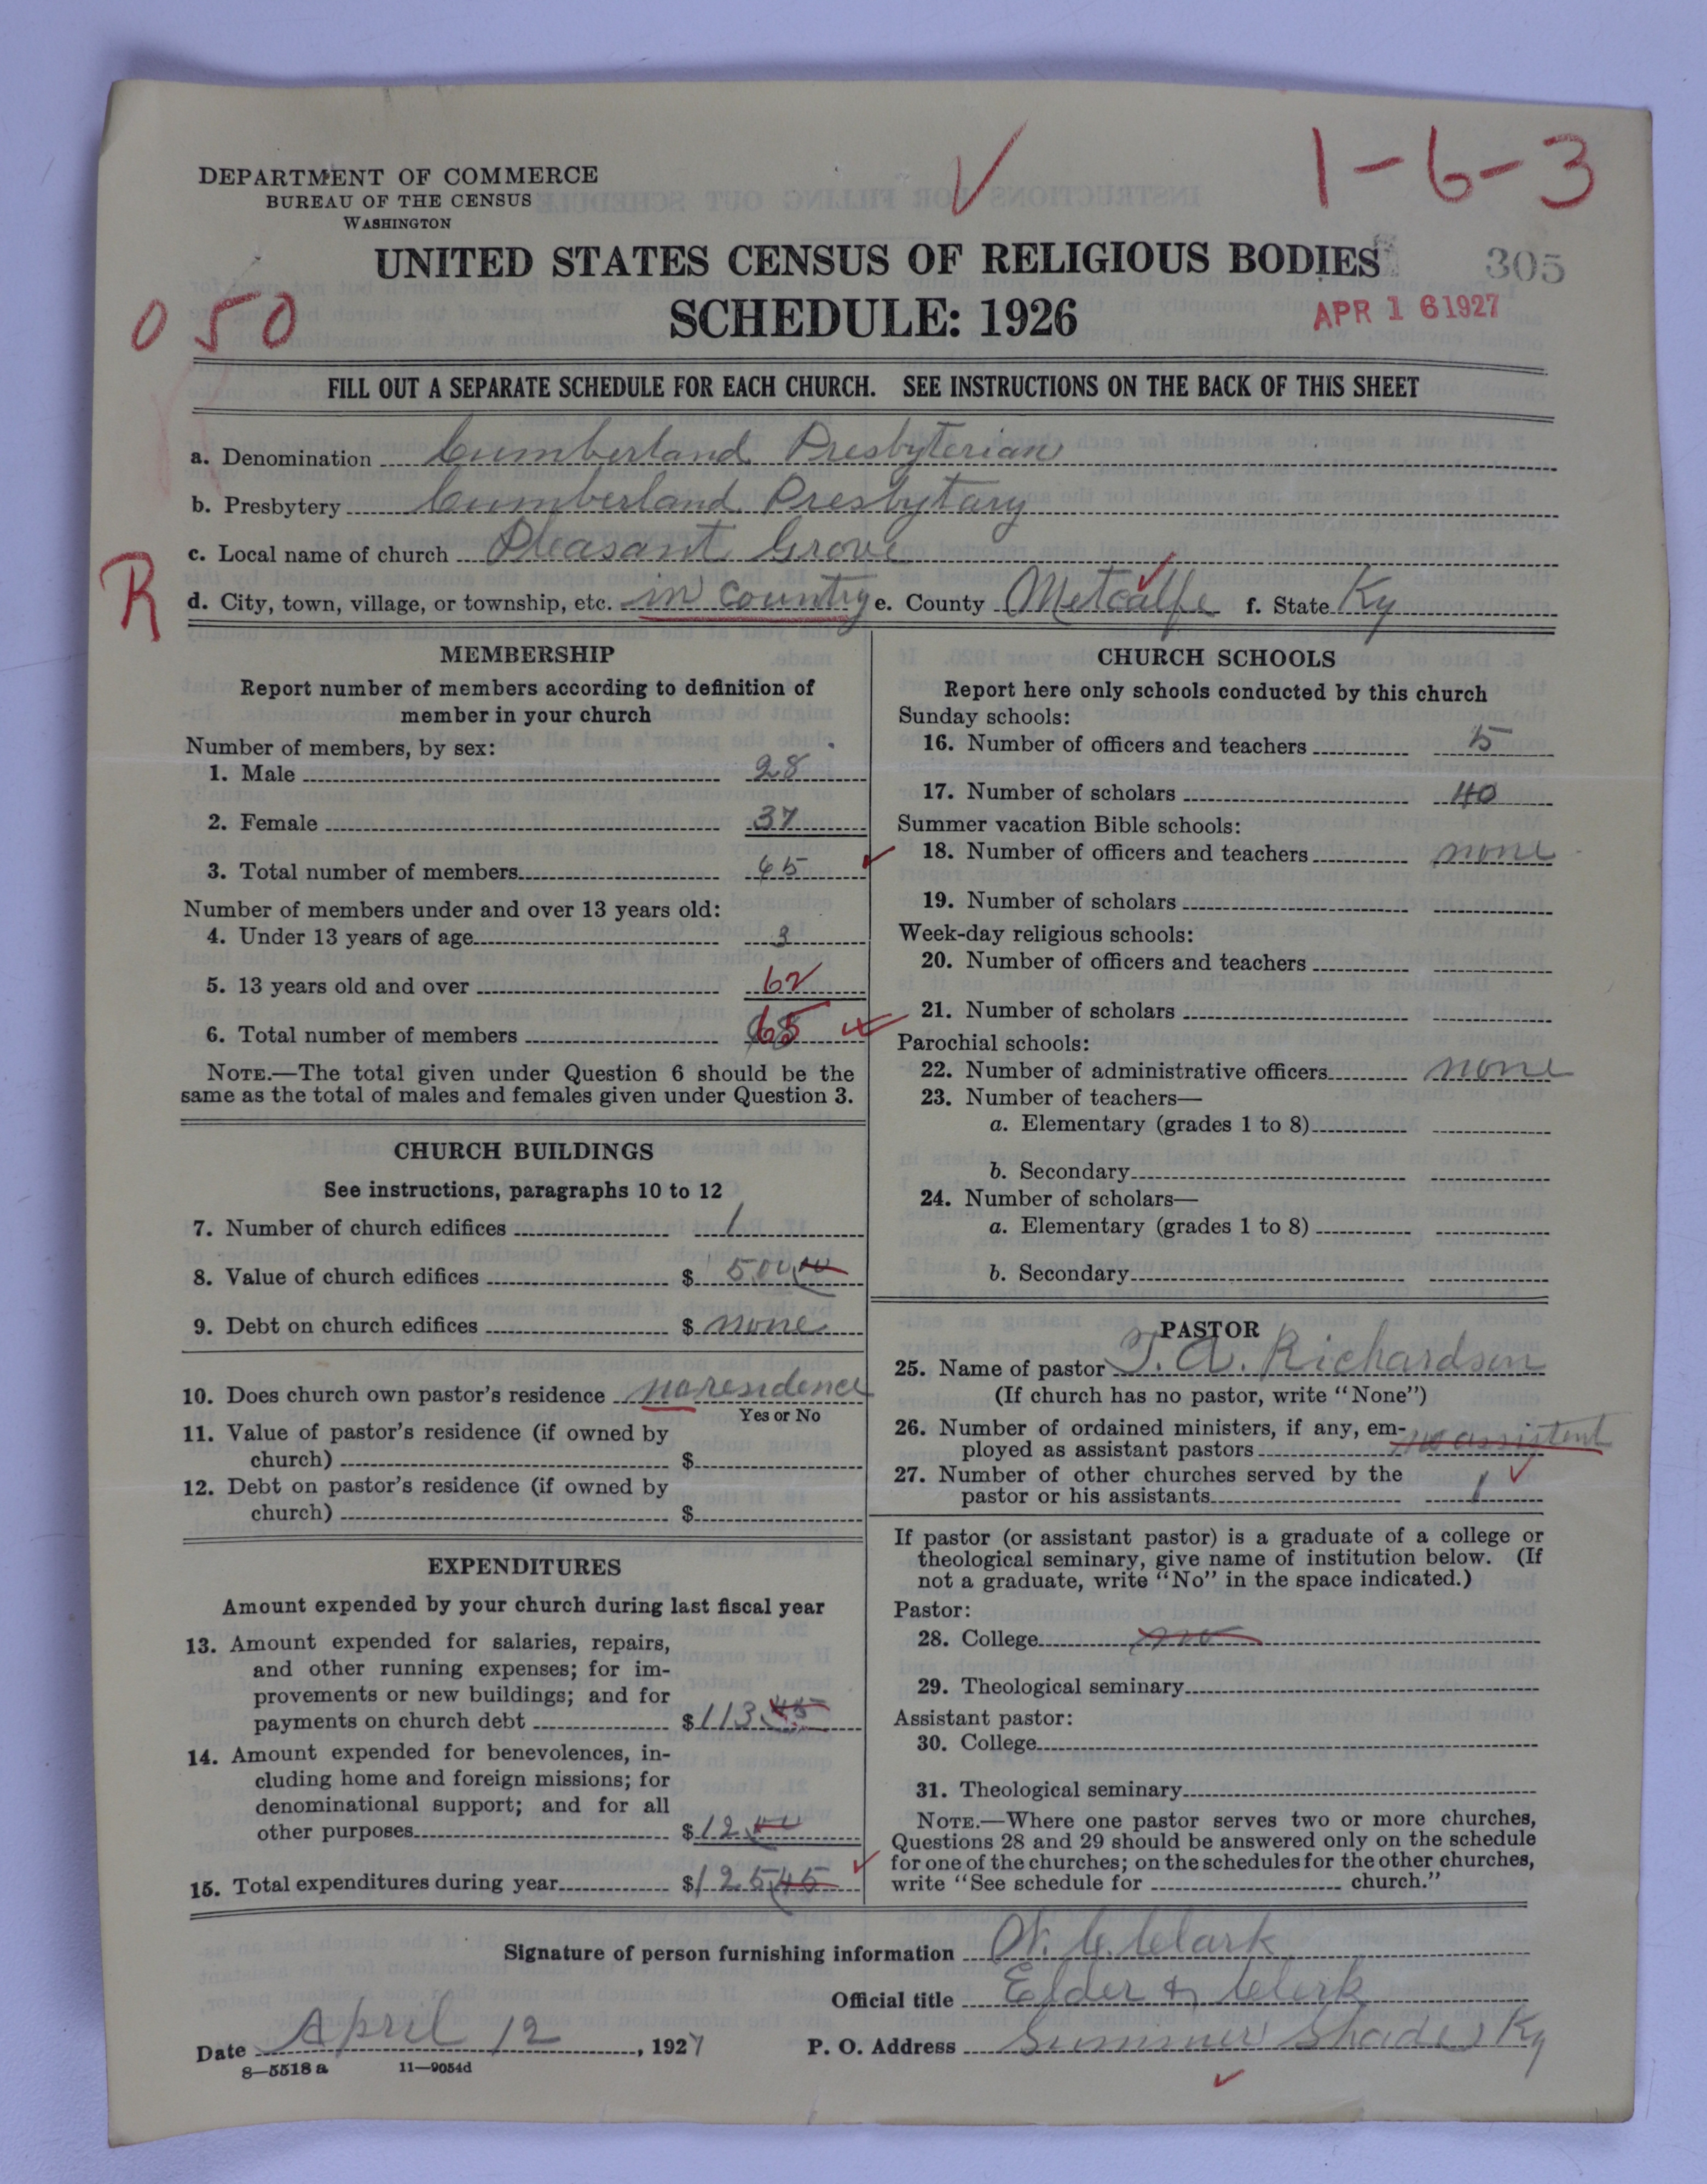 1-6-3
DEPARTMENT OF COMMERCE
BUREAU OF THE CENSUS
WASHINGTON
UNITED STATES CENSUS OF RELIGIOUS BODIES
305
SCHEDULE: 1926
APR 16 1927
050
FILL OUT A SEPARATE SCHEDULE FOR EACH CHURCH. SEE INSTRUCTIONS ON THE BACK OF THIS SHEET
a. Denomination Cumberland Presbyterian
b. Presbytery Cumberland Presbytary
c. Local name of church Pleasant Grove
R
d. City, town, village, or township, etc. in country e. County Metcalfe f. State Ky
MEMBERSHIP
Report number of members according to definition of
member in your church
Number of members, by sex:
1. Male 28
2. Female 37
3. Total number of members 65
Number of members under and over 13 years old:
4. Under 13 years of age 3
5. 13 years old and over 62
6. Total number of members 65
NOTE.—The total given under Question 6 should be the
same as the total of males and females given under Question 3.
CHURCH BUILDINGS
See instructions, paragraphs 10 to 12
7. Number of church edifices 1
8. Value of church edifices $ 500.00
9. Debt on church edifices $ none
10. Does church own pastor's residence no residence
Yes or No
11. Value of pastor's residence (if owned by
church) $
12. Debt on pastor's residence (if owned by
church) $
EXPENDITURES
Amount expended by your church during last fiscal year
13. Amount expended for salaries, repairs,
and other running expenses; for im-
provements or new buildings; and for
payments on church debt $113.45
14. Amount expended for benevolences, in-
cluding home and foreign missions; for
denominational support; and for all
other purposes $12.00
15. Total expenditures during year $125.45
CHURCH SCHOOLS
Report here only schools conducted by this church
Sunday schools:
16. Number of officers and teachers 5
17. Number of scholars 40
Summer vacation Bible schools:
18. Number of officers and teachers none
19. Number of scholars
Week-day religious schools:
20. Number of officers and teachers
21. Number of scholars
Parochial schools:
22. Number of administrative officers none
23. Number of teachers—
a. Elementary (grades 1 to 8)
b. Secondary
24. Number of scholars—
a. Elementary (grades 1 to 8)
b. Secondary
PASTOR
25. Name of pastor T. A. Richardson
(If church has no pastor, write "None")
26. Number of ordained ministers, if any, em-
ployed as assistant pastors no assistent
27. Number of other churches served by the
pastor or his assistants 1
If pastor (or assistant pastor) is a graduate of a college or
theological seminary, give name of institution below. (If
not a graduate, write "No" in the space indicated.)
Pastor:
28. College no
29. Theological seminary
Assistant pastor:
30. College
31. Theological seminary
NOTE.—Where one pastor serves two or more churches,
Questions 28 and 29 should be answered only on the schedule
for one of the churches; on the schedules for the other churches,
write "See schedule for church."
Signature of person furnishing information W. C. Clark
Official title Elder & Clerk
Date April 12, 1927 P. O. Address Summer Shade, Ky
8—5518 a 11—9054d